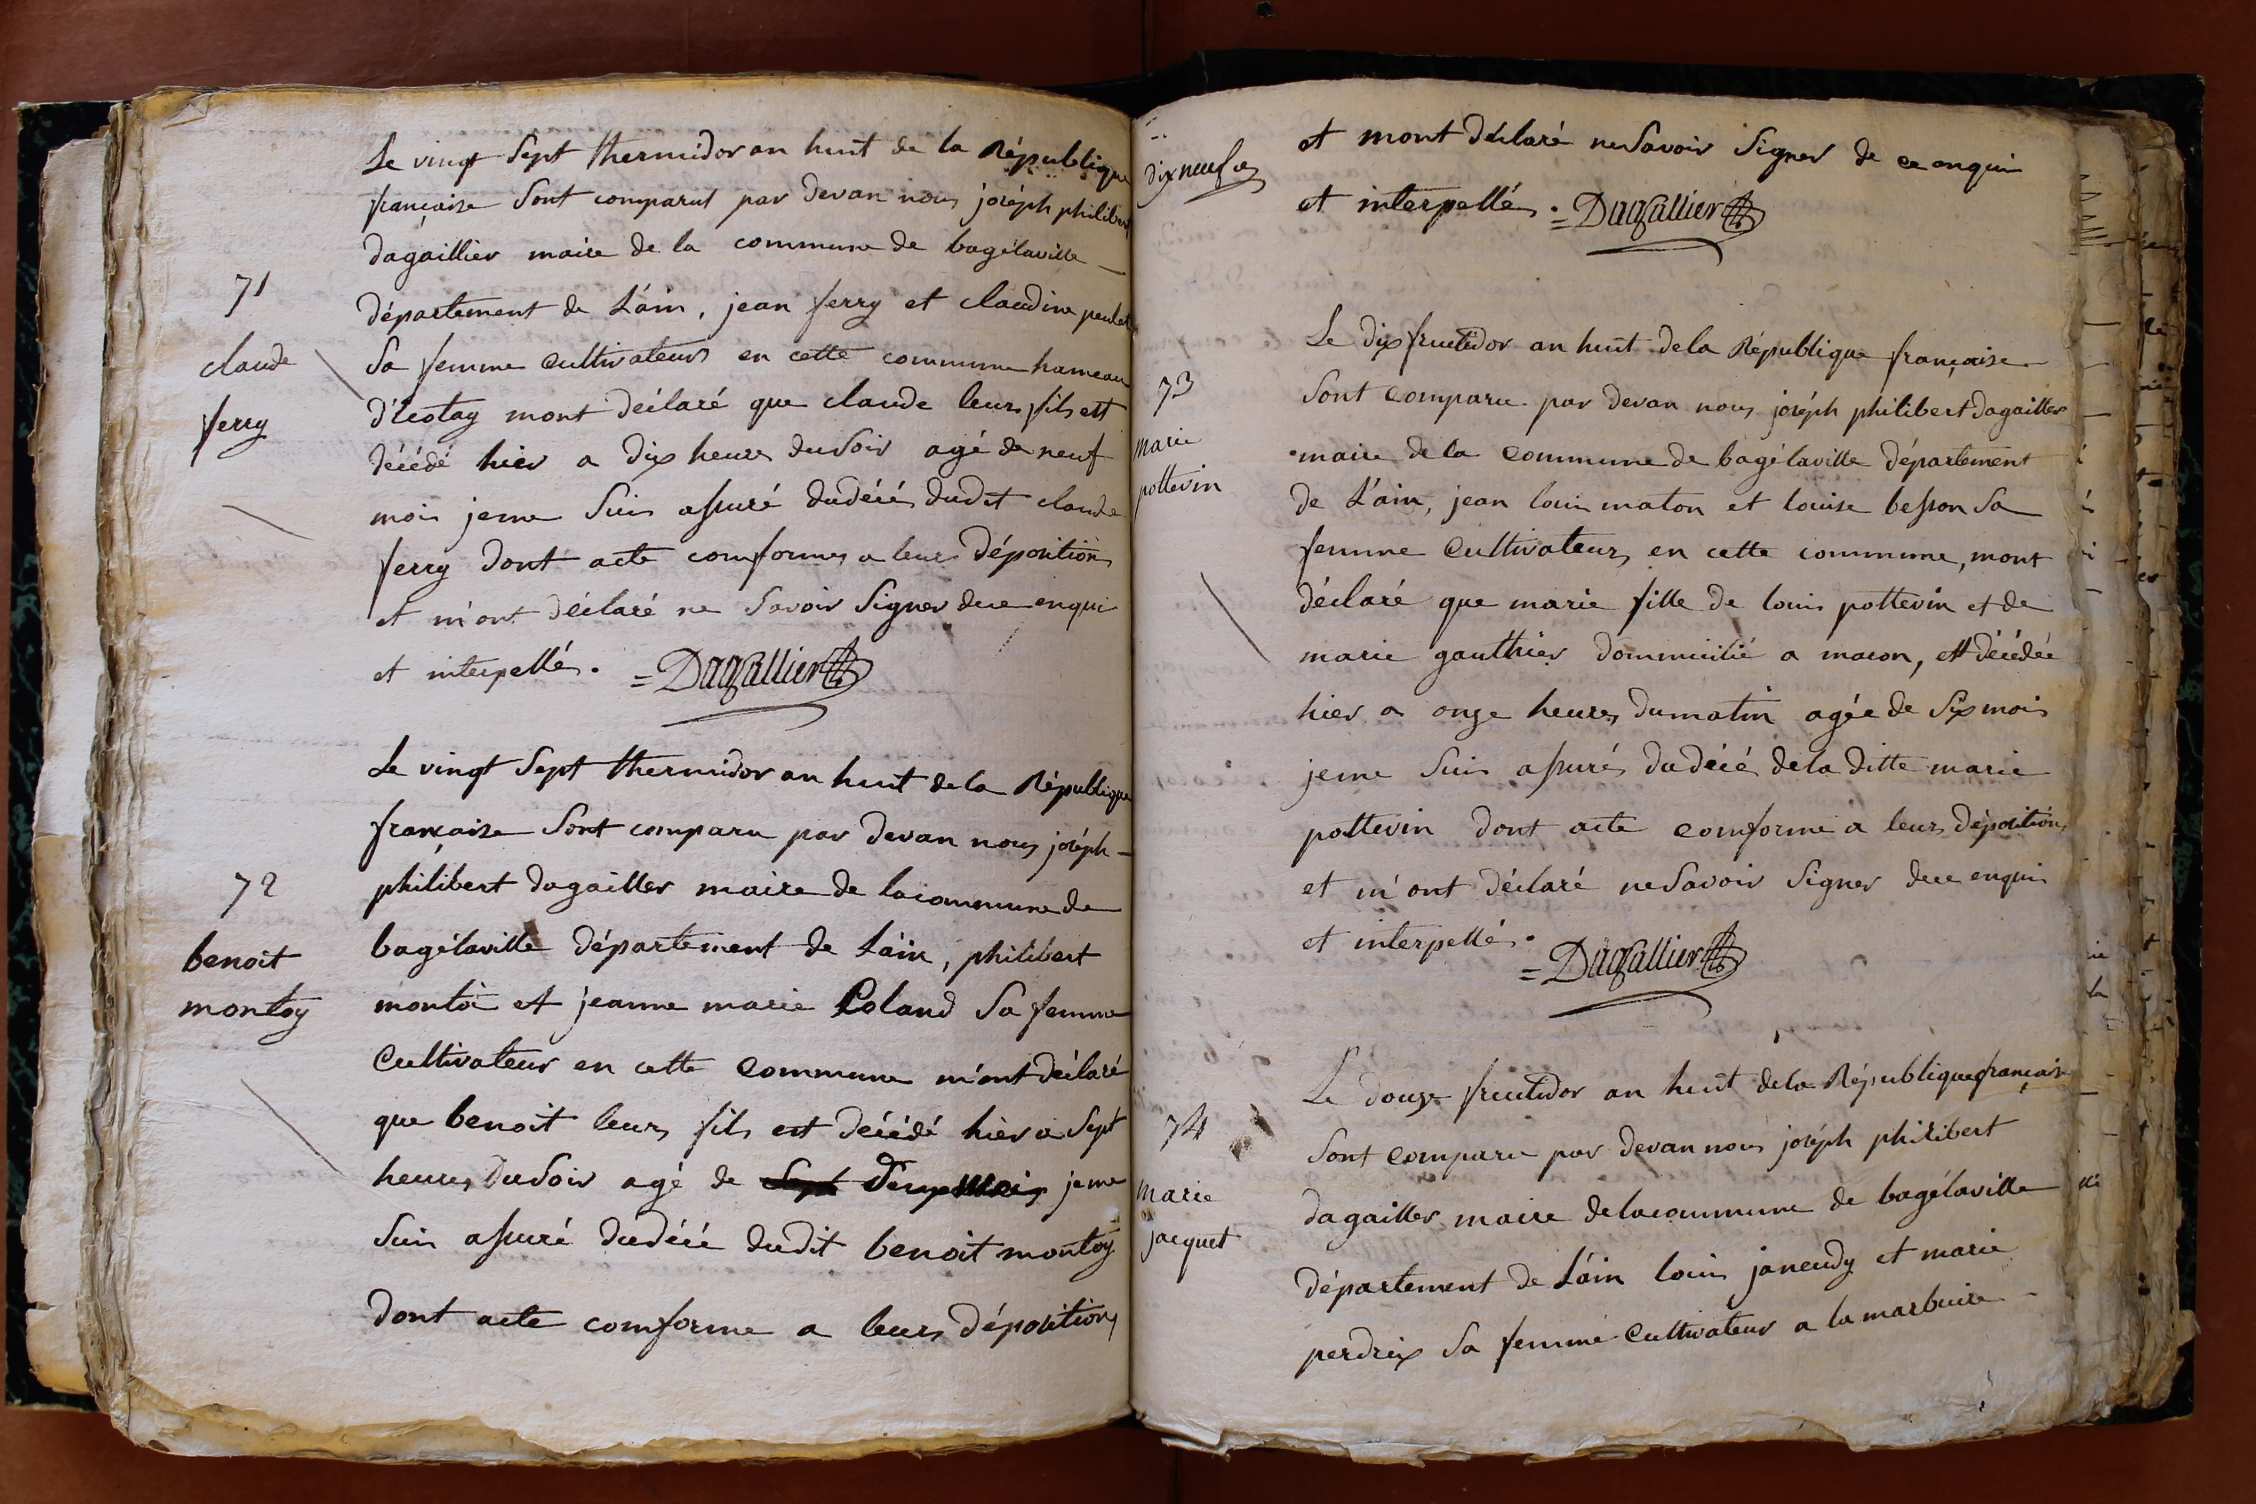 Le vingt Sept thermidor an huit de la République
française Sont comparut par devan nous joséph philibert
dagaillier maire de la commune de bagélaville
département de L'ain, jean ferry et claudine
71
Sa femme cultivateurs en cette commune hameau
claude
d'Ecotay mont déclaré que claude leurs fils est
ferry
décédé hier a dix heures du Soir agé de neuf
mois jeme Suis assuré du décé dudit claude
ferry dont acte comforme a leurs dépositions
et m'ont déclaré ne Savoir Signer de ce enqui
et interpellés. = Dagallier
Le vingt Sept thermidor an huit de la République
française Sont comparu par devan nous joséph
philibert dagaillier maire de la commune de
72
bagélaville département de L'ain, philibert
benoit
montoy
montoi et jeanne marie Roland Sa femme
Cultivateur en cette commune m'ont déclaré
que benoit leurs fils est décédé hier a Sept
heures du Soir agé de jeme
Suis assuré du décé dudit benoit montoy
Dont acte comforme a leurs dépositions
dix neuf
et mont déclaré ne Savoir Signer de ce enqui
et interpellés. = Dagallier
Le dix fructidor an huit de la République française
73
Sont comparu par devan nous joséph philibert dagaillier
marie
pottevin
maire de la commune de bagélaville département
de L'ain, jean louis maton et louise besson Sa
femme Cultivateurs en cette commune, mont
déclaré que marie fille de louis pottevin et de
marie gauthier dommicilié a macon, est décédée
hier a onze heures du matin agée de Six mois
jeme Suis assurés du décé de la ditte marie
pottevin dont acte comforme a leurs dépositions
et m'ont déclaré ne Savoir Signer de ce enqui
et interpellés. = Dagallier
Le douze fructidor an huit de la République française
74
Sont comparu par devan nous joséph philibert
marie
jacquet
dagaillier maire de la commune de bagélaville
département de L'ain louis janeudy et marie
perdrix Sa femme Cultivateur a la marbuire